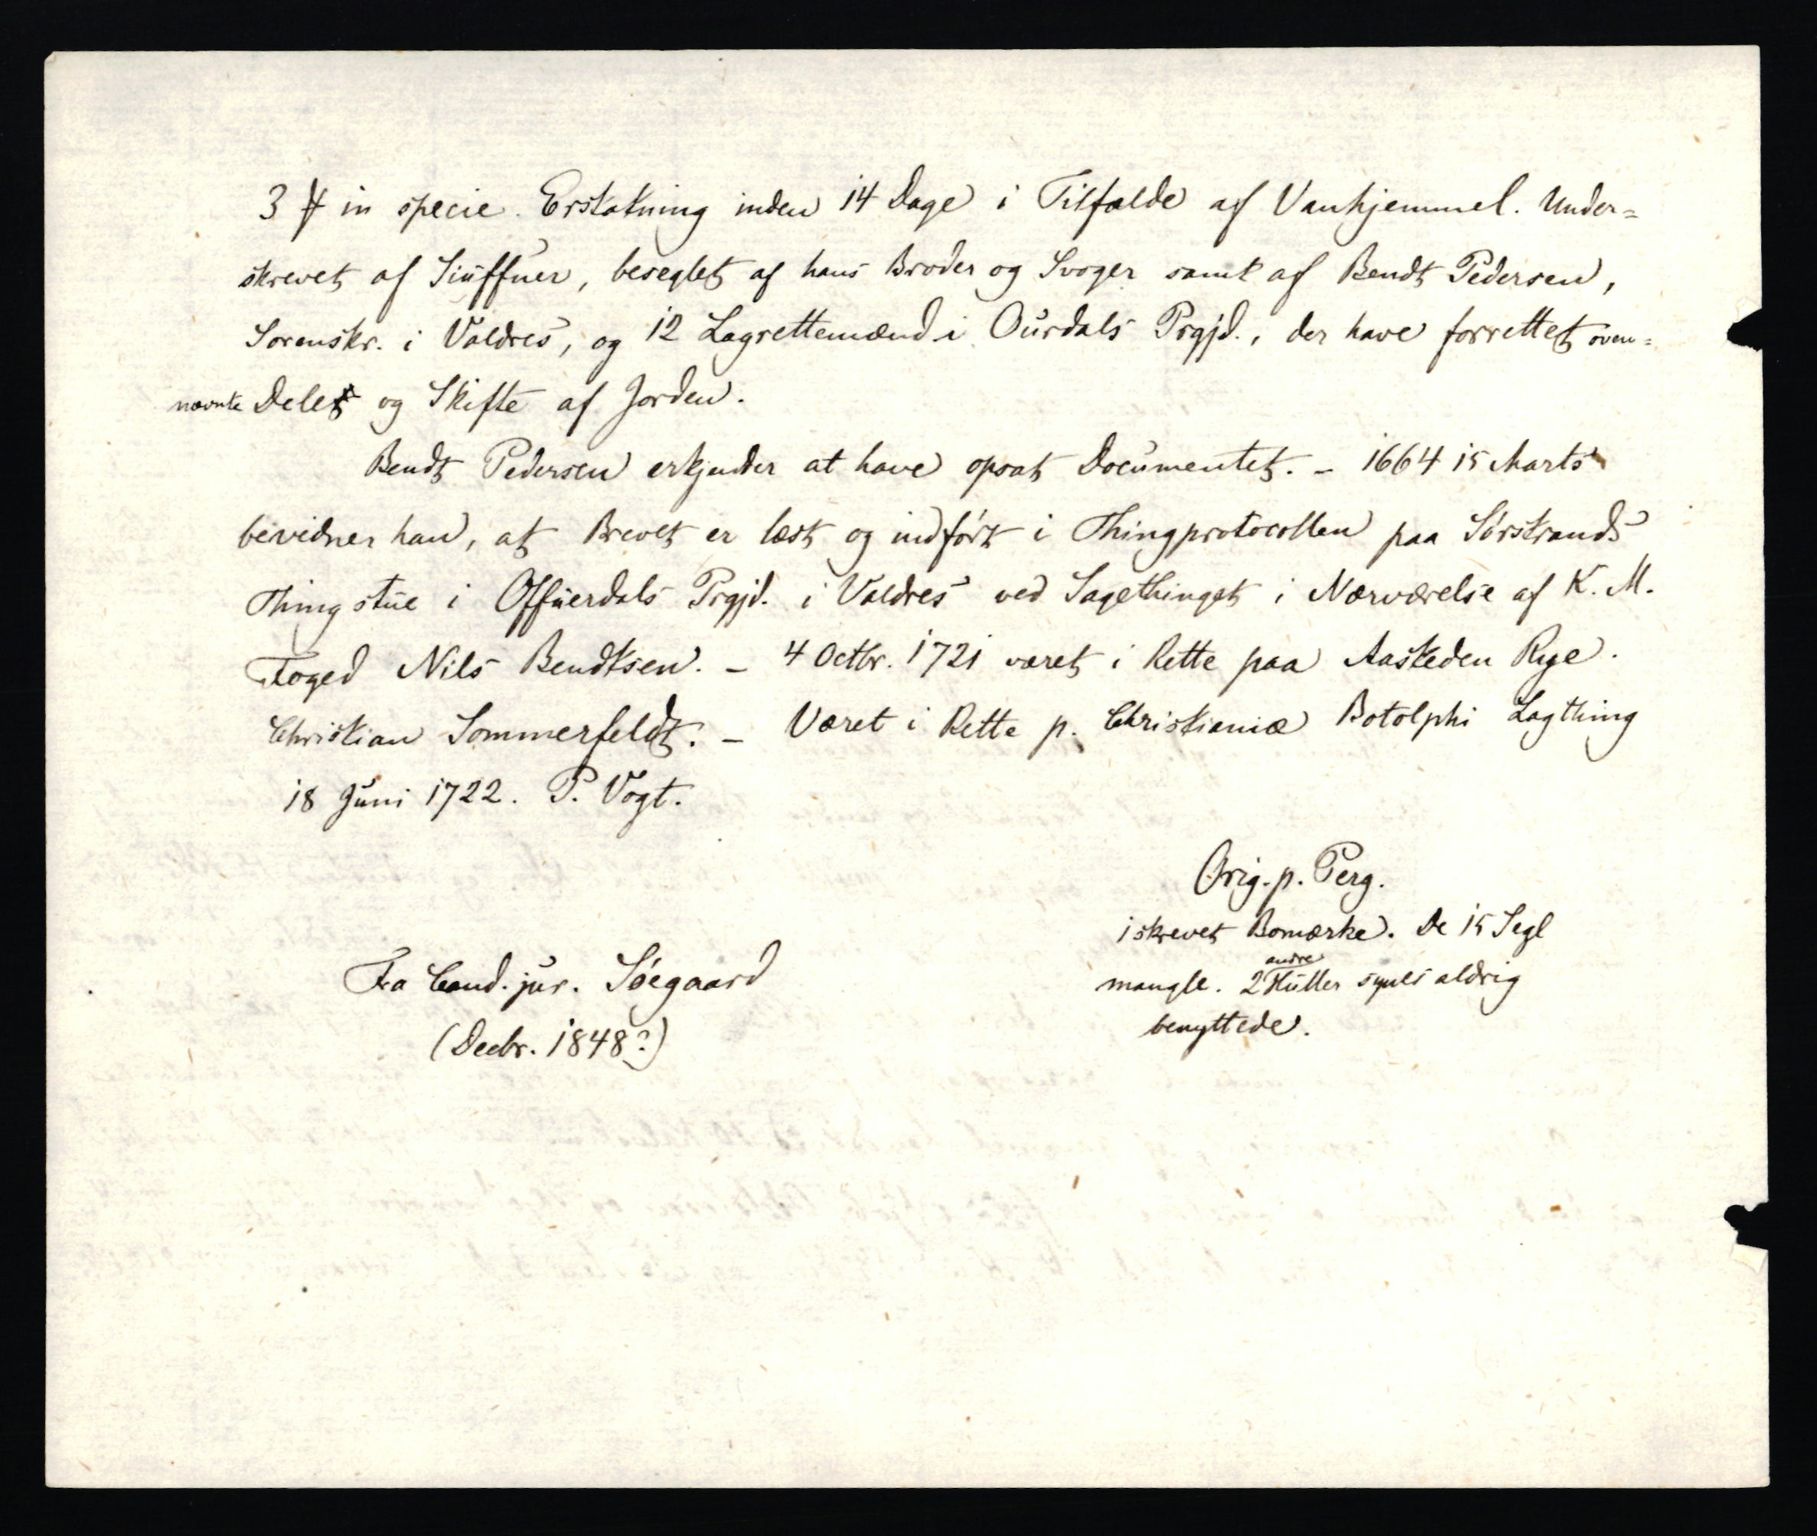 3 ꝟ in specie. Erstatning inden 14 Dage i Tilfælde af Vanhjemmel. Under=
skrevet af Siuffuer, beseglet af hans Broder og Svoger samt af Bendt Pedersen,
Sorenskr. i Valdres, og 12 Lagrettemænd i Ourdals Prgjd., der have forrettet oven=
nævnte Delet og Skifte af Jorden.
Bendt Pedersen erkjender at have opsat Documentet. – 1664 15 Marts
bevidner han, at Brevet er læst og indført i Thingprotocollen paa Sørstrands
Thingstue i Offuerdals Prgjd. i Valdres ved Sagethinget i Nærværelse af K. M.
Foged Nils Bendtsen. – 4 Octbr. 1721 været i Rette paa Aasteden Rye.
Christian Sommerfeldt. – Været i Rette p. Christianiæ Botolphi Lagthing
18 Juni 1722. P. Vogt.
Orig. p. Perg.
1 skrevet Bomærke. De 15 Segl
mangle. 2 andre Huller synes aldrig
benyttede.
Fra Cand. jur. Søegaard
(Decbr. 1848?)